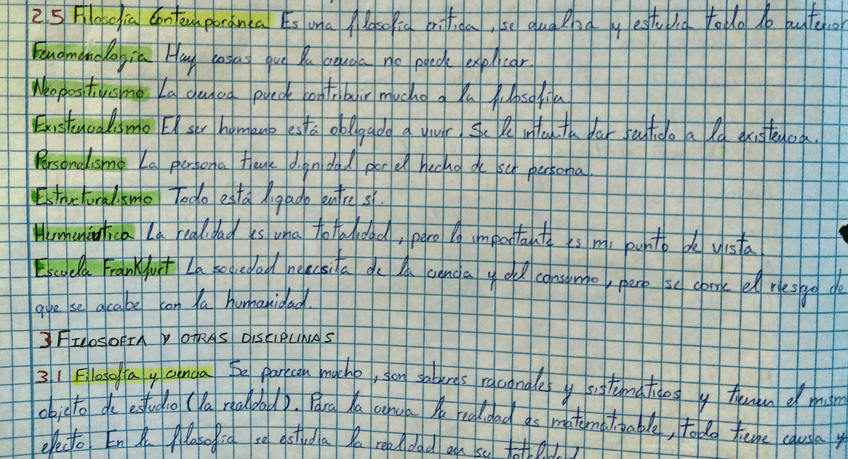 2.5 Filosofía Contemporánea Es una filosofía crítica, se analiza y estudia todo lo anterior
Fenomenología Hay cosas que la ciencia no puede explicar.
Neopositivismo La ciencia puede contribuir mucho a la filosofía
Existencialismo El ser humano está obligado a vivir. Se le intenta dar sentido a la existencia.
Personalismo La persona tiene dignidad por el hecho de ser persona.
Estructuralismo Todo está ligado entre sí.
Hermenéutica La realidad es una totalidad, pero lo importante es mi punto de vista.
Escuela Frankfurt La sociedad necesita de la ciencia y del consumo, pero se corre el riesgo de
que se acabe con la humanidad.
3 FILOSOFIA Y OTRAS DISCIPLINAS
3.1 Filosofía y ciencia Se parecen mucho, son saberes racionales y sistemáticos y tienen el mism
objeto de estudio (la realidad). Para la ciencia la realidad es matematizable, todo tiene causa y
efecto. En la filosofía se estudia la realidad en su totalidad